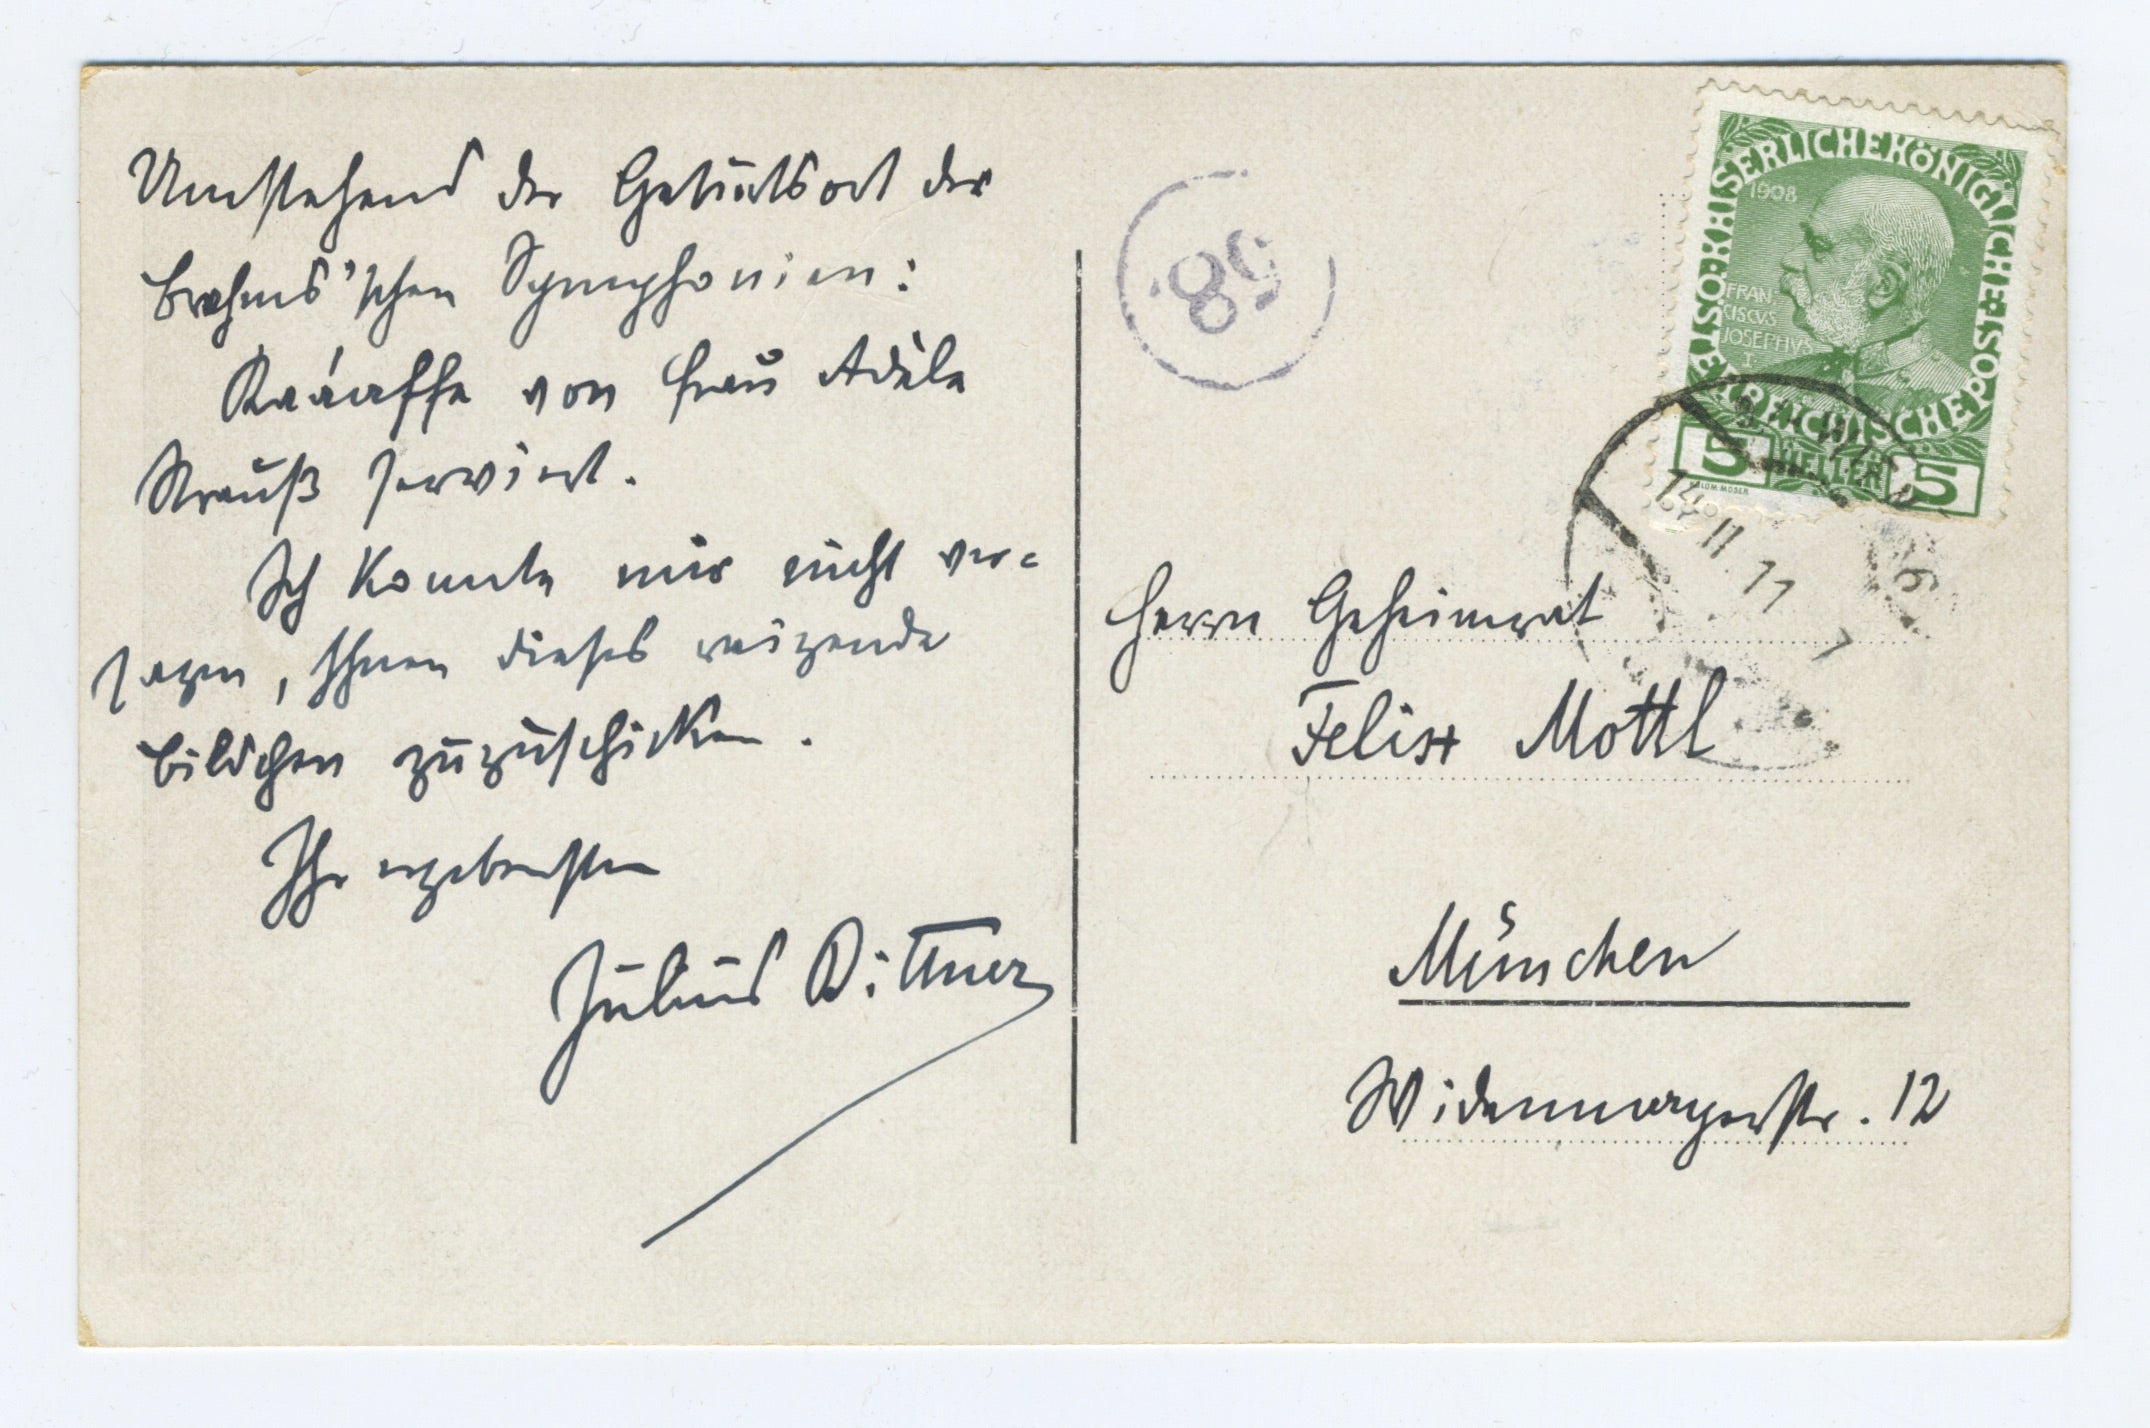 Umstehend der Geburtsort der
Brahms'schen Symphonien:
von Frau Adele
Strauß serviert.
Ich konnte mir nicht ver=
sagen, Ihnen dieses reizende
Bildchen zuzuschicken.
Ihr ergebenster
Julius Bittner
58.
KAISERLICHE KÖNIGLICHE ÖSTERREICHISCHE POST
1908
FRAN-
CISCVS
JOSEPHVS
I.
5 HELLER 5
14. II. 11
Herrn Geheimrat
Felix Mottl
München
Widenmayerstr. 12